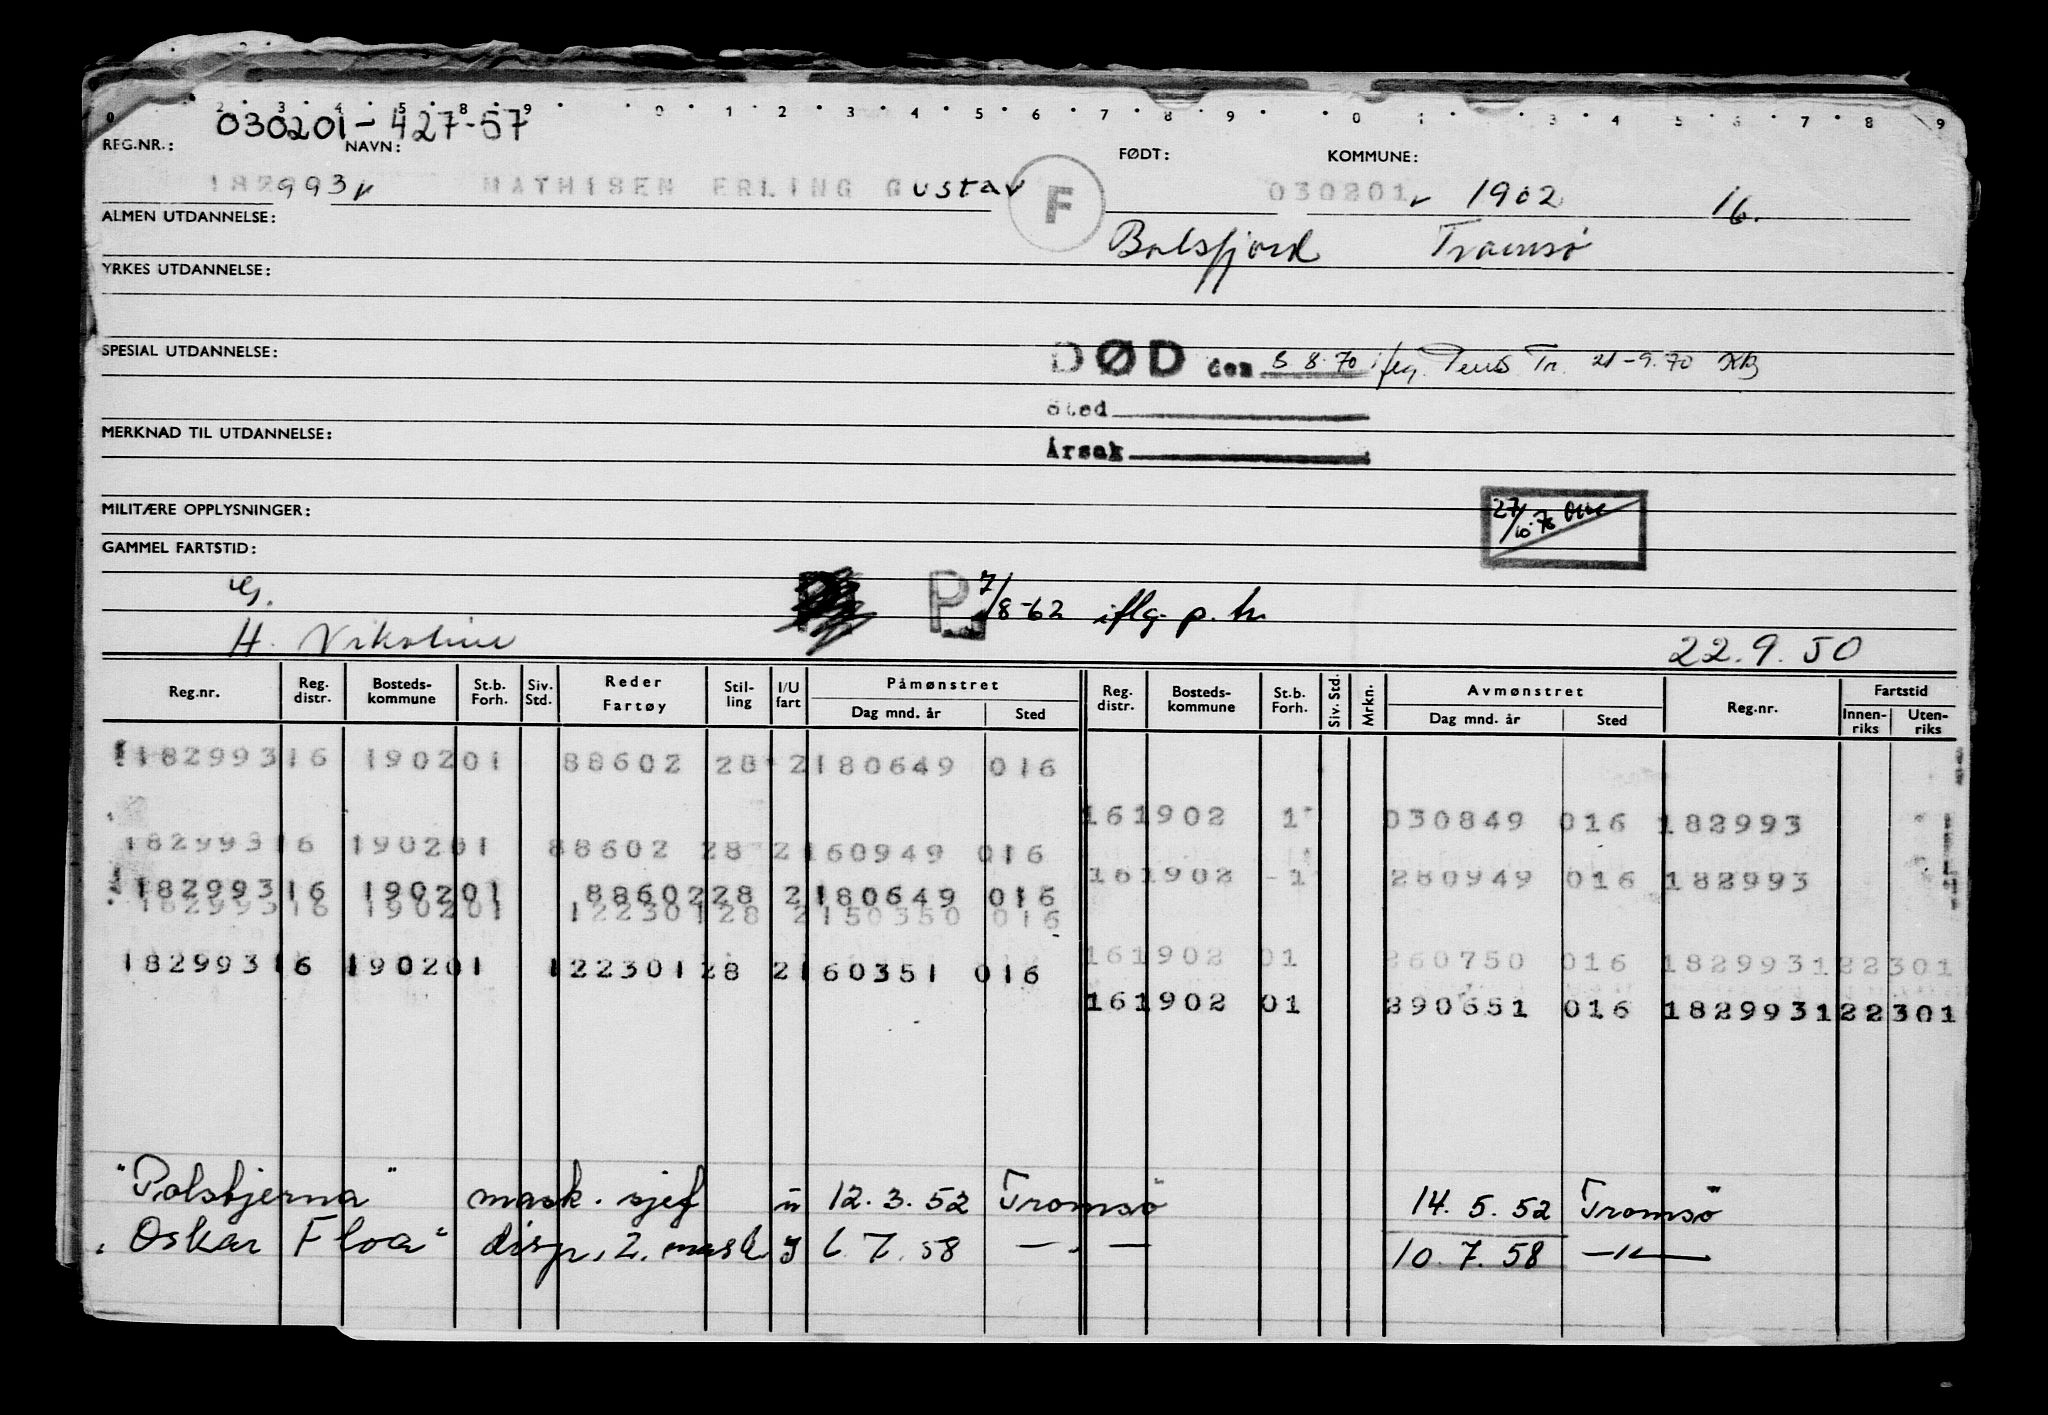 2 3 4 5 8 9 0 1 2 3 4 5 6 7 8 9 0 1 3 4 5 6 7 8 9
030201-427-57
REG.NR.: NAVN: FØDT: KOMMUNE:
182993 MATHISEN ERLING GUstav F 030201 1902 16.
ALMEN UTDANNELSE:
Balsfjord Tromsø
YRKES UTDANNELSE:
SPESIAL UTDANNELSE: DØD den 3.8.70 Tr. 21-9.70
Sted
MERKNAD TIL UTDANNELSE:
Årsak
MILITÆRE OPPLYSNINGER: 27/10-76
GAMMEL FARTSTID:
G. P. 7/8-62 iflg. p. tr.
H. Nikoline 22.9.50
Reg.nr. Reg. distr. Bosteds-kommune St.b. Forh. Siv. Std. Reder Fartøy Stil-ling I/U fart Påmønstret Dag mnd. år Sted Reg. distr. Bosteds-kommune St.b. Forh. Siv. Std. Mrkn. Avmønstret Dag mnd. år Sted Reg.nr. Fartstid Innen-riks Uten-riks
182993 16 1902 01 88602 28 2 180649 016
16 1902 1 030849 016 182993
182993 16 1902 01 88602 28 2 160949 016
16 1902 1 280949 016 182993
182993 16 1902 01 88602 28 2 180649 016
182993 16 1902 01 122301 28 2 150350 016
16 1902 01 260750 016 182993 122301
182993 16 1902 01 122301 28 2 160351 016
16 1902 01 290651 016 182993 122301
"Polsbjerna" mask. sjef u 12.3.52 Tromsø 14.5.52 Tromsø
"Oskar Floa" disp. 2. mask 6.7.58 — " — 10.7.58 — " —